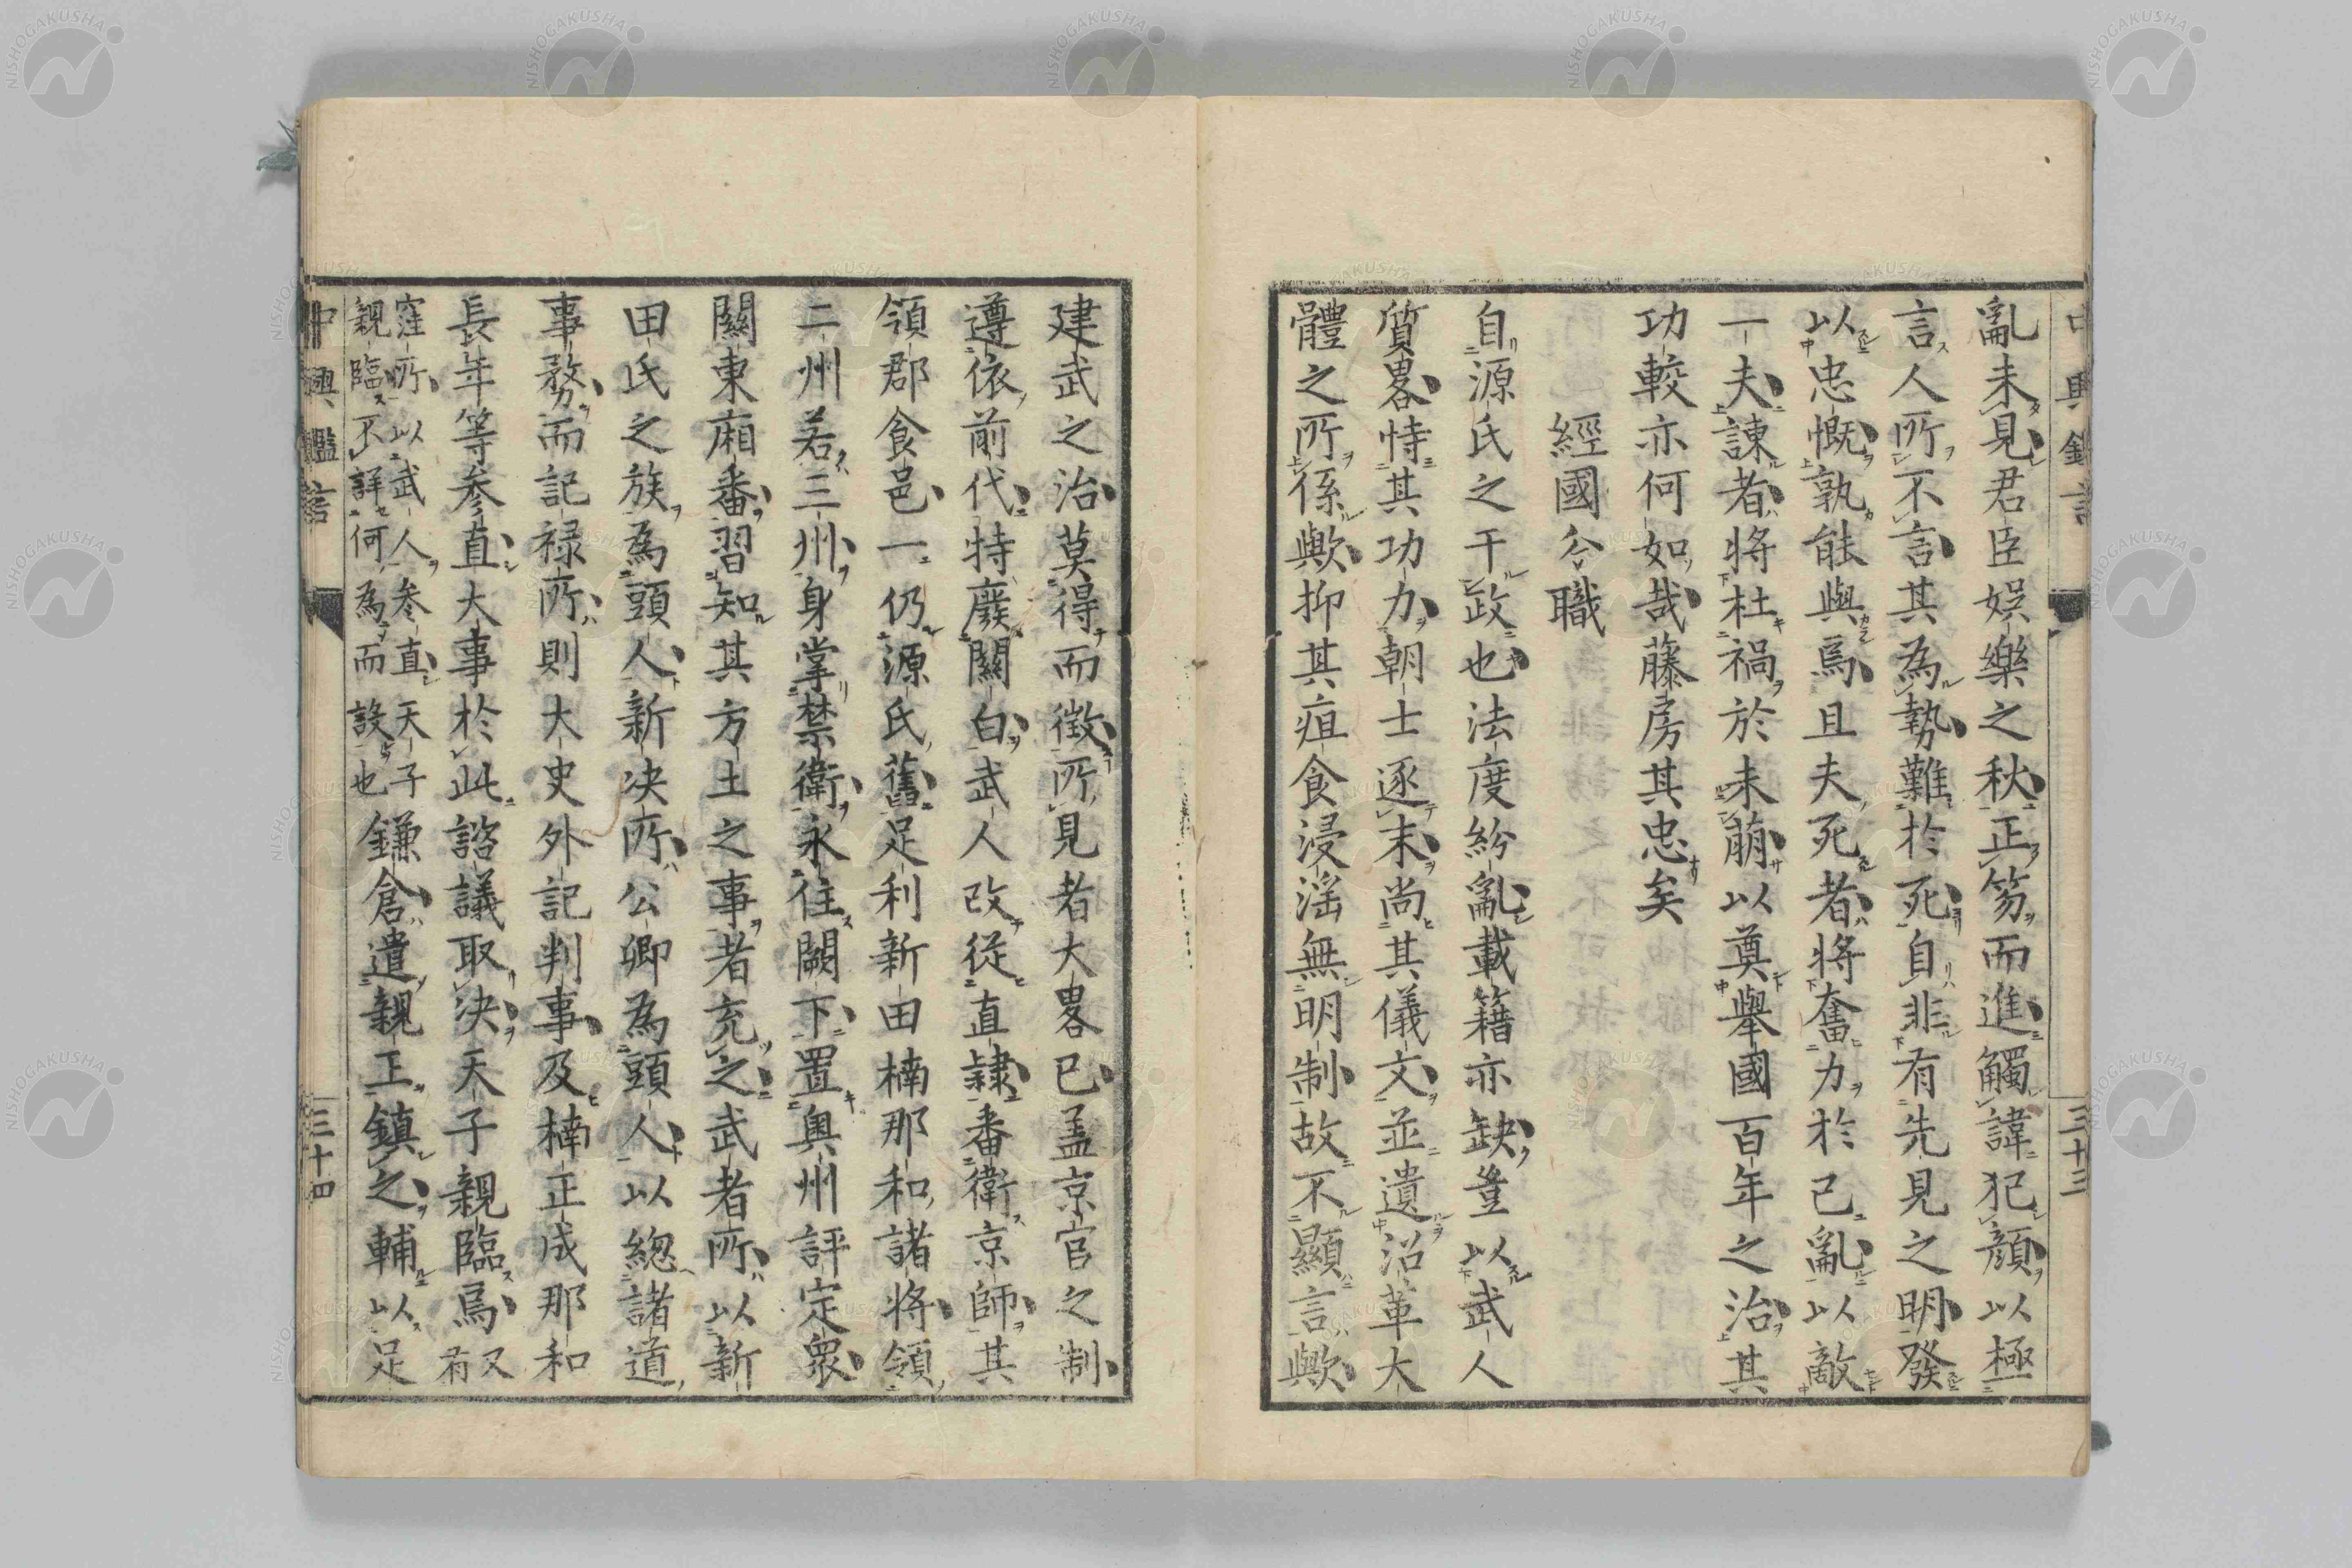 亂未見君臣娯樂之秋正笏而進觸諱犯顔以極
言人所不言其為勢難於死自非有先見之明發
以忠慨孰能與焉且夫死者將奮力於已亂以敵
一夫諌者將杜禍於未萠以奠舉國百年之治其
功較亦何如哉藤房其忠矣
經國分職
自源氏之干政也法度紛亂載籍亦缺豈以武人
質畧恃其功力朝士逐末尚其儀文並遺沿革大
體之所係歟抑其疽食浸滛無明制故不顯言歟
三十三
建武之治莫得而徴所見者大畧已盖京官之制
遵依前代特廢關白武人改從直隷番衛京師其
領郡食邑一仍源氏舊足利新田楠那和諸將領
二州若三州身掌禁衛永住闕下置奥州評定衆
關東廂番習知其方土之事者充之武者所以新
田氏之族為頭人新决所公卿為頭人以總諸道
事務而記禄所則大史外記判事及楠正成那和
長年等参直大事於此諮議取决天子親臨焉又有
窪所以武人参直天子
親臨不詳何為而設也
鎌倉遣親王鎮之輔以足
中興鑑言
三十四
NISHOGAKUSHA